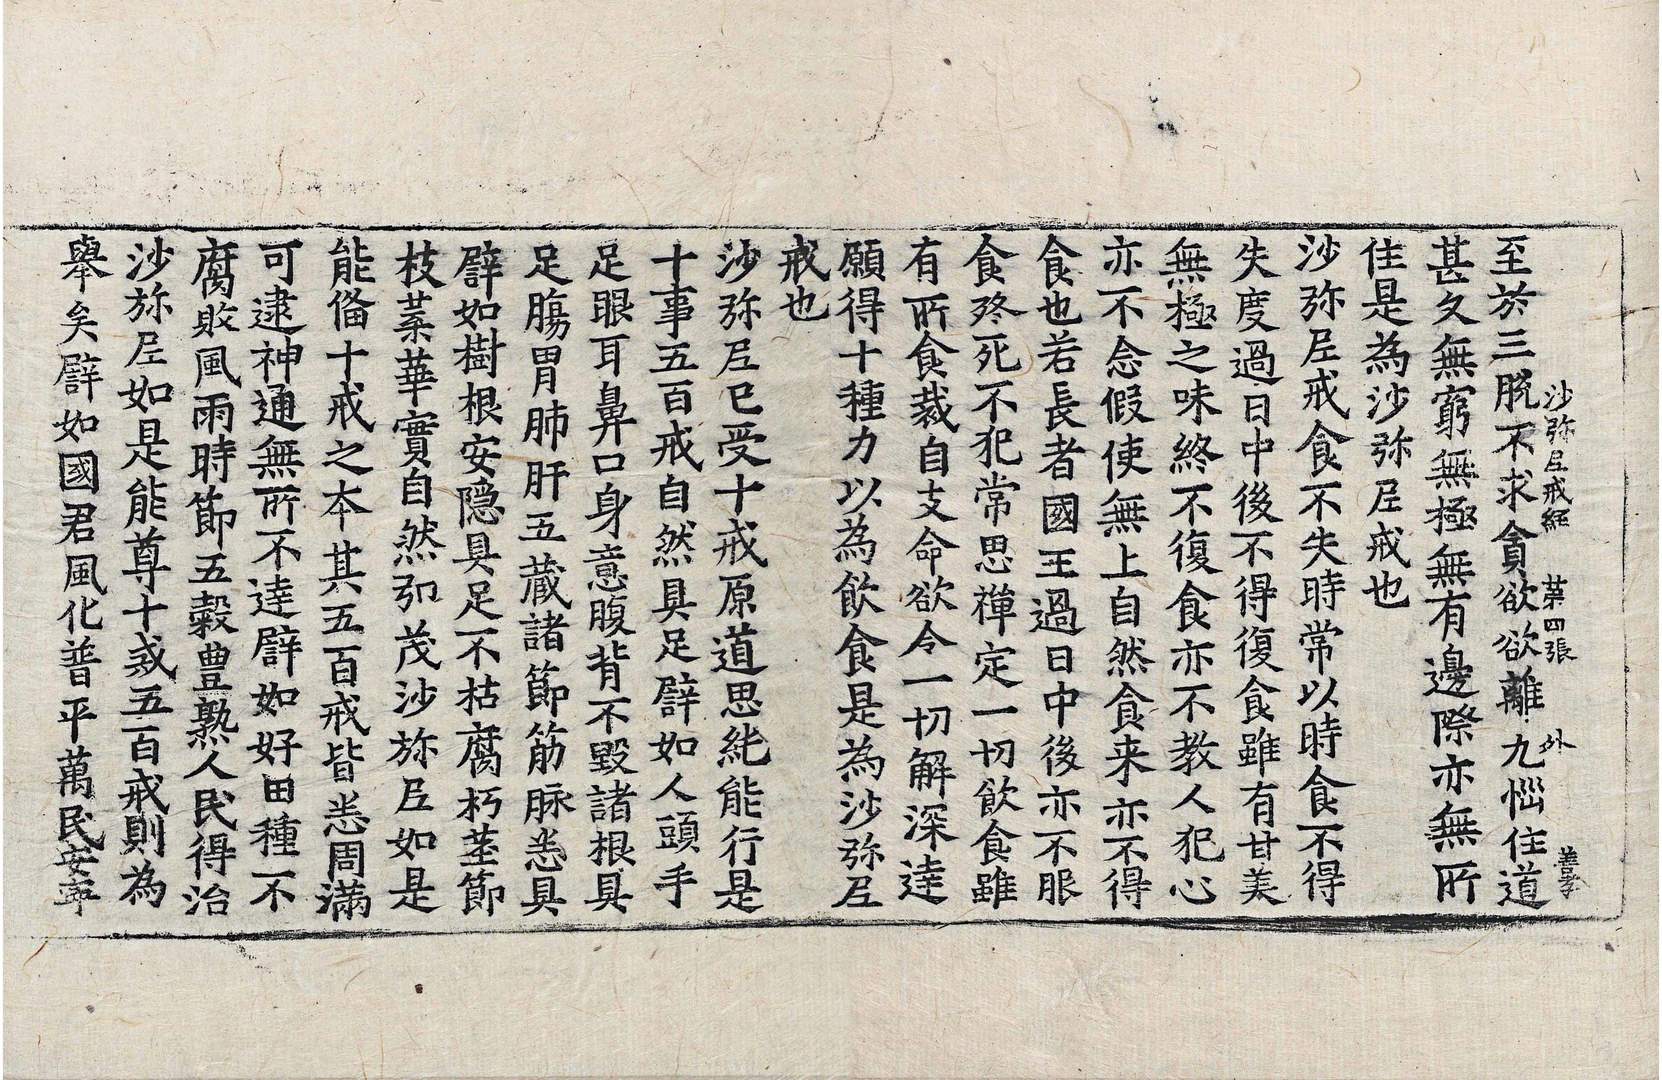 沙弥尼戒経 第四張 外 善孝
至於三脫不求貪欲欲離九惱住道
甚久無窮無極無有邊際亦無所
住是為沙弥尼戒也
沙弥尼戒食不失時常以時食不得
失度過日中後不得復食雖有甘美
無極之味終不復食亦不教人犯心
亦不念假使無上自然食来亦不得
食也若長者國王過日中後亦不服
食終死不犯常思禪定一切飲食雖
有所食裁自支命欲令一切解深達
願得十種力以為飲食是為沙弥尼
戒也
沙弥尼已受十戒原道思純能行是
十事五百戒自然具足譬如人頭手
足眼耳鼻口身意腹背不毀諸根具
足腸胃肺肝五蔵諸節筋脉悉具
譬如樹根安隱具足不枯腐朽莖節
枝葉華實自然弘茂沙弥尼如是
能俻十戒之本其五百戒皆悉周滿
可逮神通無所不達譬如好田種不
腐敗風雨時節五穀豊熟人民得治
沙弥尼如是能尊十戒五百戒則為
舉矣譬如國君風化普平萬民安寧